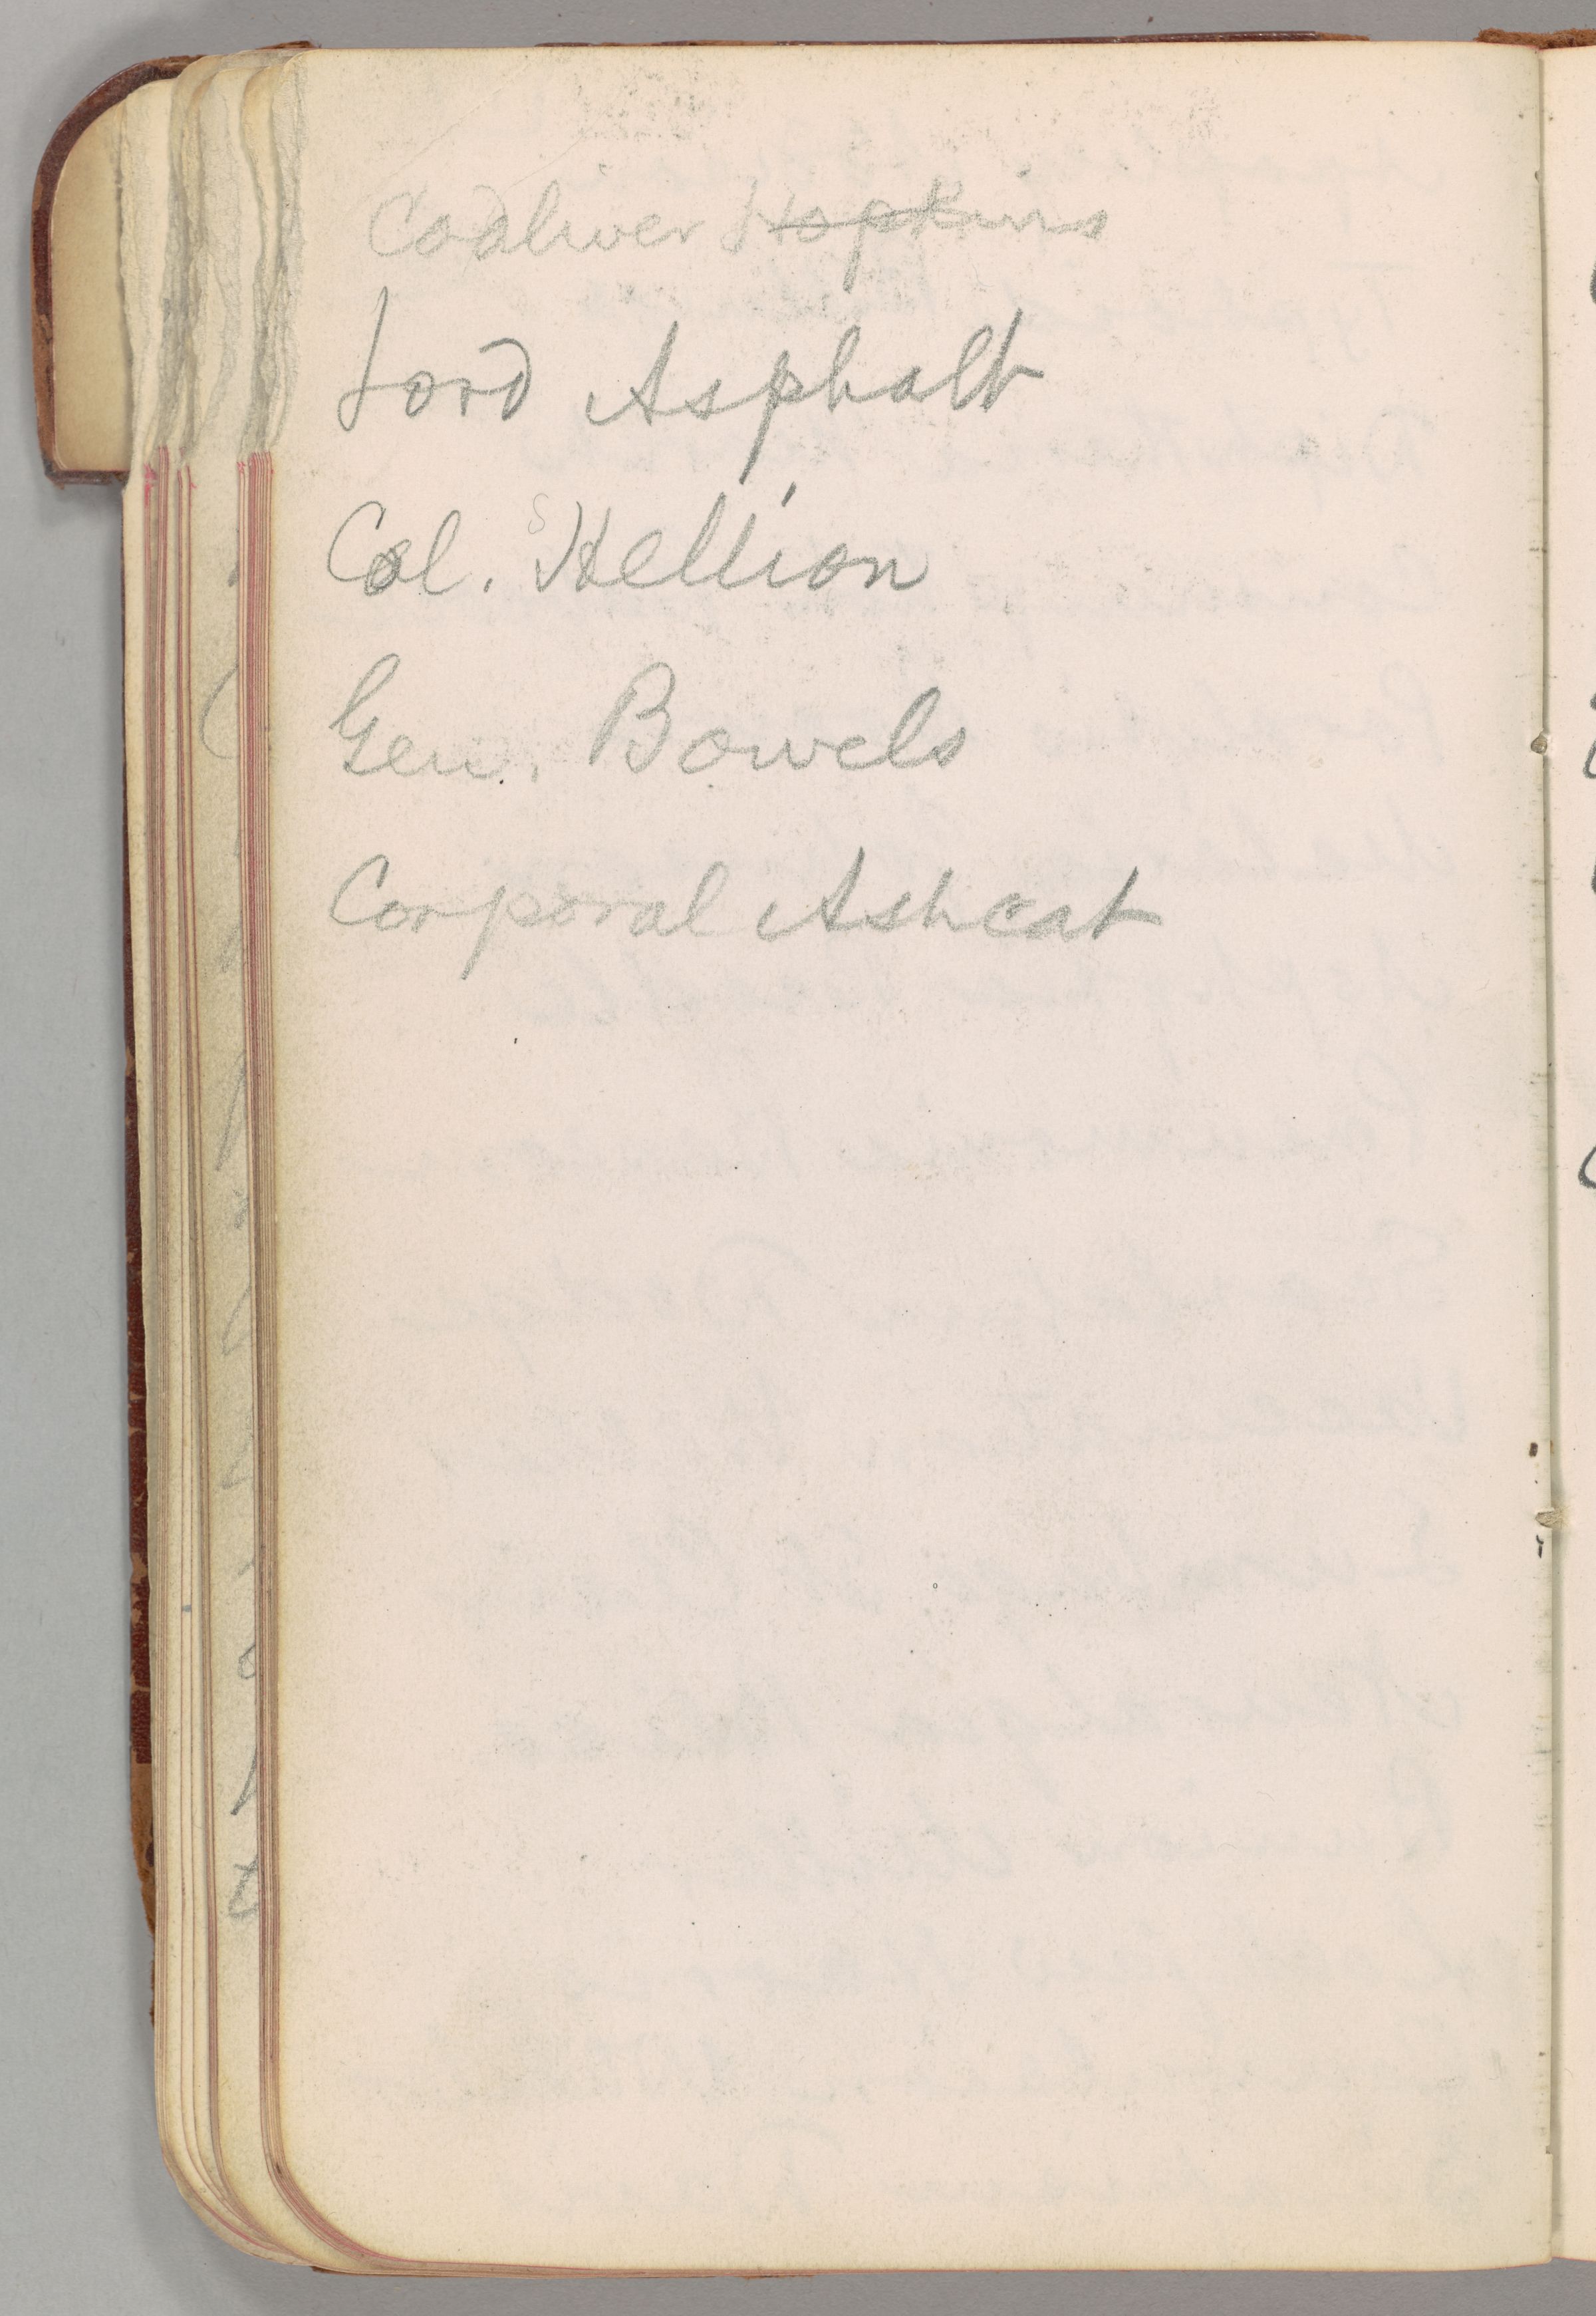 Codliver Hopkins
Lord Asphalt
Col. Hellion
Gen. Bowels
Corporal Ashcat